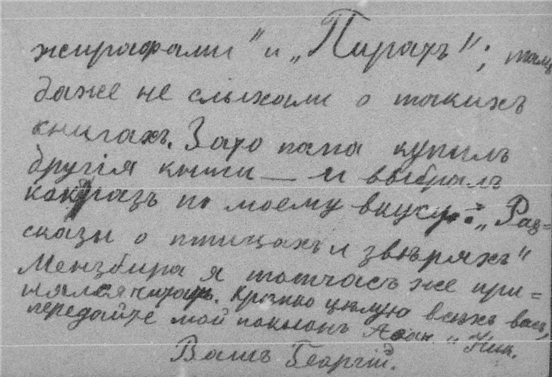 жирафами" и „Пиратъ"; тамъ
даже не слыхали о такихъ
книгахъ. Зато папа купилъ
другія книги — и выбралъ
какъ разъ по моему вкусу: „Раз=
сказы о птицахъ и звѣряхъ"
Мензбира я тотчасъ же при=
нялся читать. Крѣпко цѣлую всѣхъ васъ,
передайте мой поклонъ и Ник.
Вашъ Георгій.